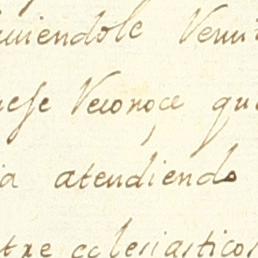 uiendole Venir
ese Reconoçe qu
ia atendiendo
tre eclesiasticos